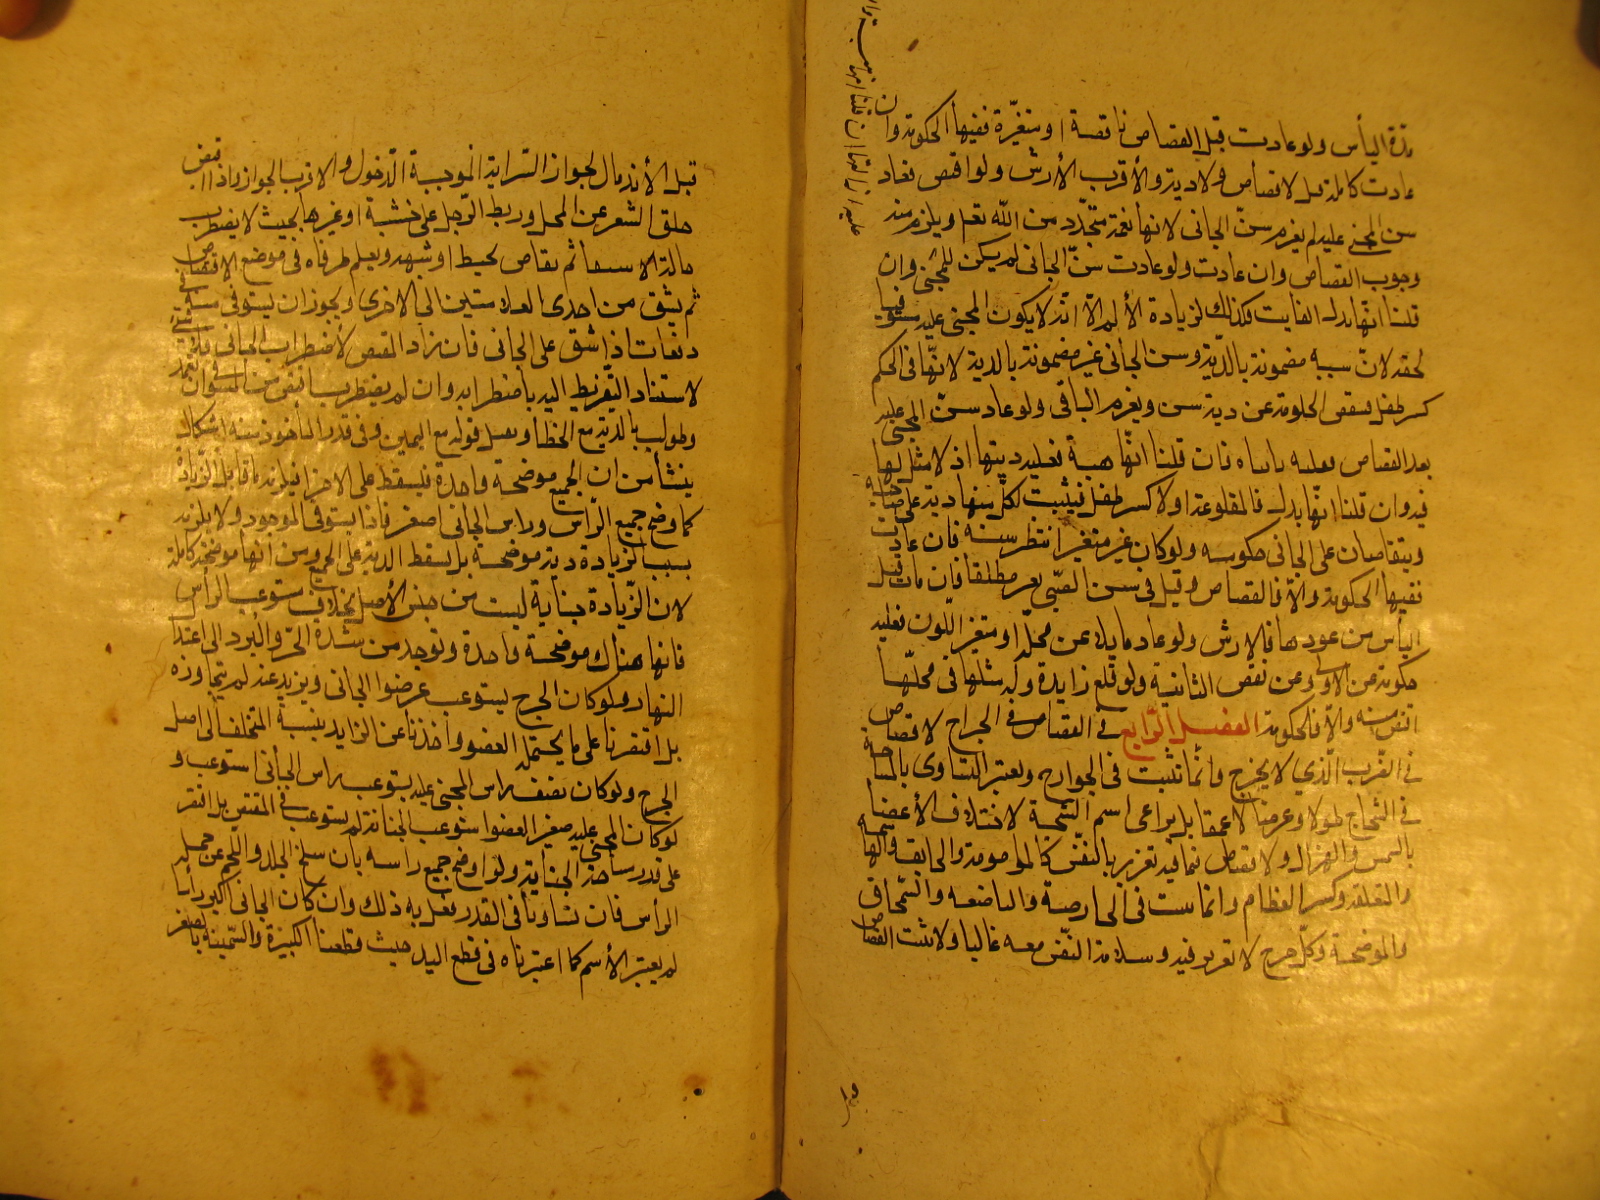 مدة اليأس ولو عادت قبل القصاص ناقصة او متغيّرة ففيها الحكومة وان
عادت كاملة قبل لا قصاص ولا دية والأقرب الأرش ولو اقتص فعاد
سن المجنى عليه لم يغرم سنّ الجاني لانها نعمة متجدّدة من الله تعم ويلزم منه
وجوب القصاص وان عادت ولو عادت سنّ الجاني لم يكن للمجنى وان
قلنا انها بدل الفايت فكذلك لزيادة الألم الّا انه لا يكون المجنى عليه مستوفيا
لحقه لانّ سنه مضمونة بالديّة وسن الجاني غير مضمونة بالدية لانّها في الحكم
كسن طفل فينقص الحكومة عن دية سن ويغرم الباقي ولو عاد سنّ المجنى عليه
بعد القصاص فعليه فان قلنا انّها هبة فعليه ديتها اذ لا مثل لها
فيه وان قلنا انّها بدل فالمقلوعة اولا كسن طفل فيثبت لكلّ منها دية على صاحبه
ويتقاصان على الجاني حكومة ولو كان غير متغر انتظر سنة فان عادت
ففيها الحكومة والّا فالقصاص وقيل في سن الصّبي بعير مطلقا فان مات قبل
اليأس من عودها فالارش ولو عاد مايلا عن محلّه او متغير اللّون فعليه
حكومة من الاولى ومن نقص الثانية ولو قلع زايدة وله مثلها في محلّها
اقتص منه والّا فالحكومة الفصل الرّابع في القصاص في الجراح لا قصاص
في الضّرب الّذي لا يجرح وانّما تثبت في الجوارح ويعتبر التساوى بالمساحة
في الشجاج طولا وعرضا لا عمقا بل يراعى اسم الشجة لاختلاف الأعضاء
بالسمن والهزال ولا قصاص فيما فيه تعزير بالنفس كالمأمومة والجايفة والهاشمة
والمنقلة وكسر العظام وانما يثبت في الحارصة والباضعه والسّمحاق
والموضحة وكلّ جرح لا تعزير فيه وسلامة النّفس معه غالبا ولا تثبت القصاص
قبل الأندمال لجواز السّراية الموجبة الدّخول والاقرب الجواز واذا اقتص
حلق الشعر عن المحل وربط الرّجل على خشبة او غيرها بحيث لا يضطرب
حالة الاستيفا ثم يقاس بخيط او شبهه ويعلم طرفاه في موضع الاقتصاص
ثم يشق من احدى العلامتين الى الاخرى ويجوز ان يستوفى منه في
دفعات اذا شق على الجاني فان زاد المقتص لاضطراب الجاني فلا شئ
لاستناد التّفريط اليه باضطرابه وان لم يضطرب اقتص من المستوفى في العمد
وطولب بالدية مع الخطأ ويقبل قوله مع اليمين وفي قدر المأخوذ منه اشكال
ينشأ من ان الجميع موضحة واحدة فيسقط على الاجزا فيلزمه ما قابل الزّيادة
كما وضح جميع الرّأس وراس الجاني اصغر فاذا استوفى الموجود ولا يلزمه
بسبب الزّيادة دية موضحة بل يسقط الدية على الجميع ومن انها موضحة كاملة
لان الزّيادة جناية ليست من جنس الأصل بخلاف مستوعب الرأس
فانها هناك موضحة واحدة وتوجد من شدّة الحرّ والبرد الى اعتدال
النهار ولو كان الجرح يستوعب عرضوا الجاني ويزيد عنه لم يتجاوزه
بل اقتصرنا على ما يحتمله العضو واخذنا عن الزايد بنسبة المتخلف الى اصل
الجرح ولو كان نصف راس المجنى عليه يستوعب راس الجاني استوعب و
لو كان المجنى عليه صغير العضو استوعب الجناية لم يستوعب في المقتص بل اقتصر
على قدر مساحة الجناية ولو اوضح جميع راسه بان سلخ الجلد واللّحم عن جملة
الرأس فان تساويا في القدر فعل به ذلك وان كان الجاني اكبر رأسا
لم يعتبر الأسم كما اعتبرناه في قطع اليد حيث قطعنا الكبيرة والسّمينة بالصغر